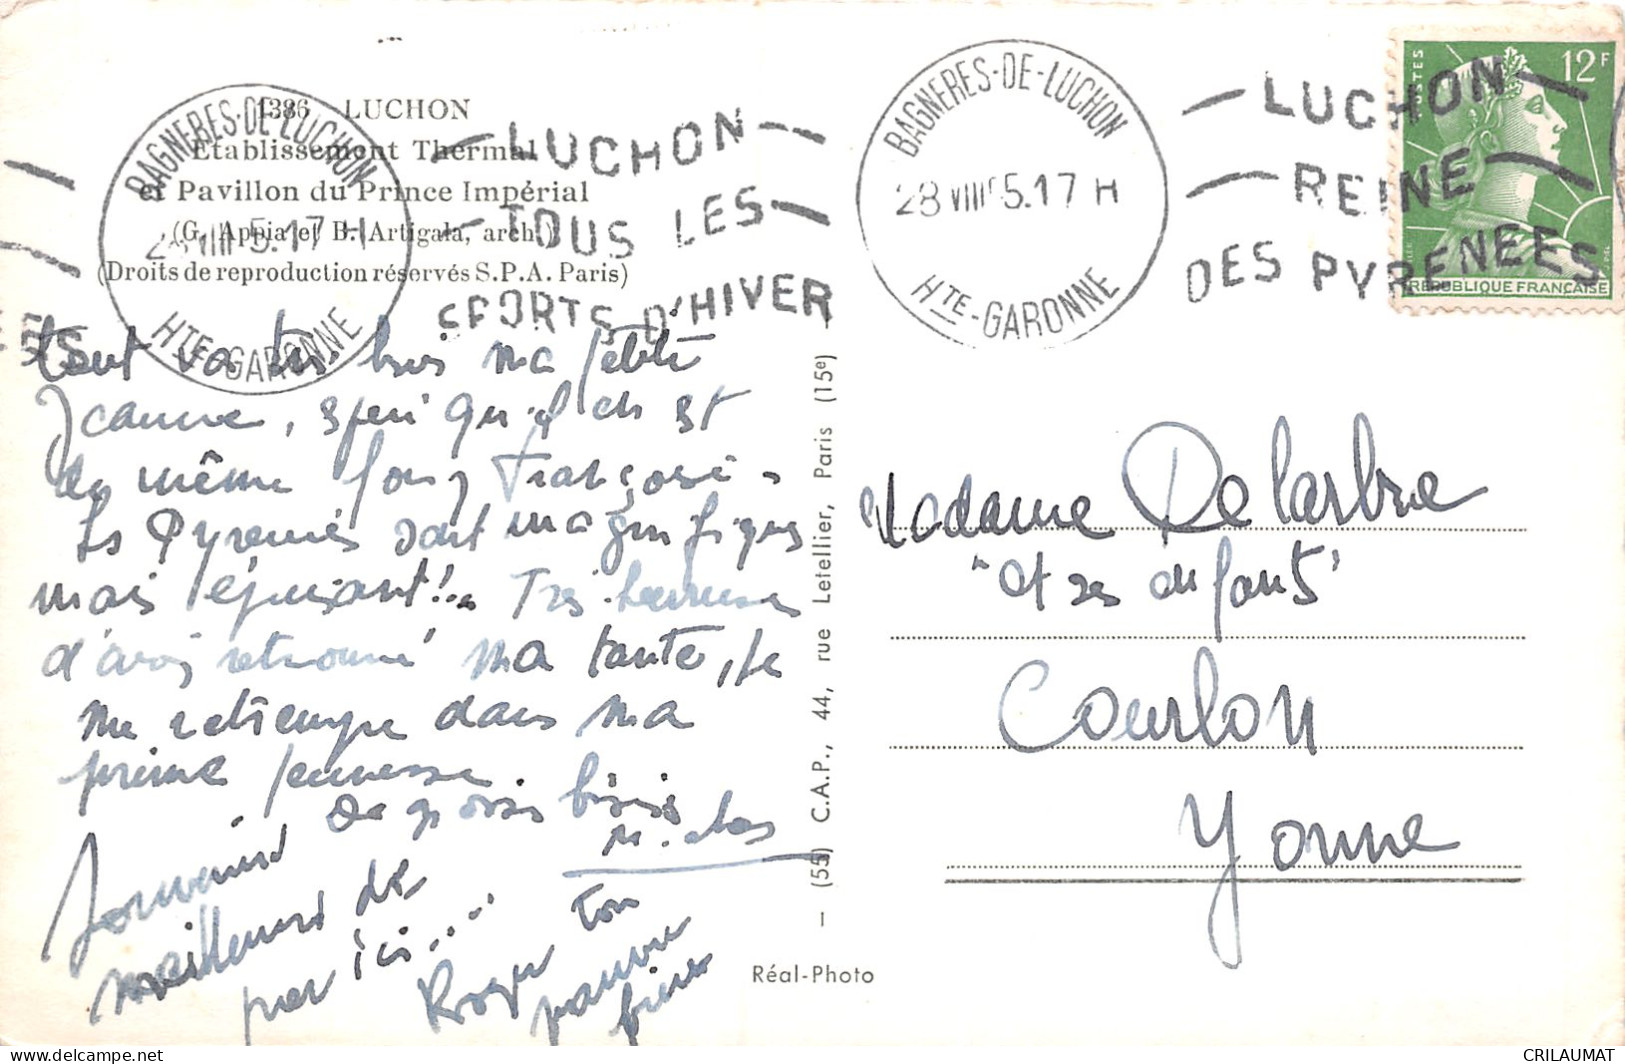 1386 LUCHON
Etablissement Thermal
et Pavillon du Prince Impérial
(G. Appia et B. Artigala, arch.)
(Droits de reproduction réservés S.P.A. Paris)
BAGNERES-DE-LUCHON
5.17 H
HTE-GARONNE
LUCHON
TOUS LES
SPORTS D'HIVER
BAGNERES-DE-LUCHON
28 VIII 5.17 H
HTE-GARONNE
LUCHON
REINE
DES PYRENEES
POSTES
12F
REPUBLIQUE FRANÇAISE
tout va très bien ma petite
Jeanne, j'espère qu'il en est
de même pour François.
Les Pyrénées sont magnifiques
mais épuisant!.. Très heureuse
d'avoir retrouvé ma tante, je
me retrempe dans ma
prime jeunesse.
De grosses bises
Souvenirs
meilleurs de
par ici....
Roger
Ton
pauvre
frère
(55) C.A.P., 44, rue Letellier, Paris (15e)
Réal-Photo
Madame Delarbre
"et ses enfants"
Courlon
Yonne
CRILAUMAT